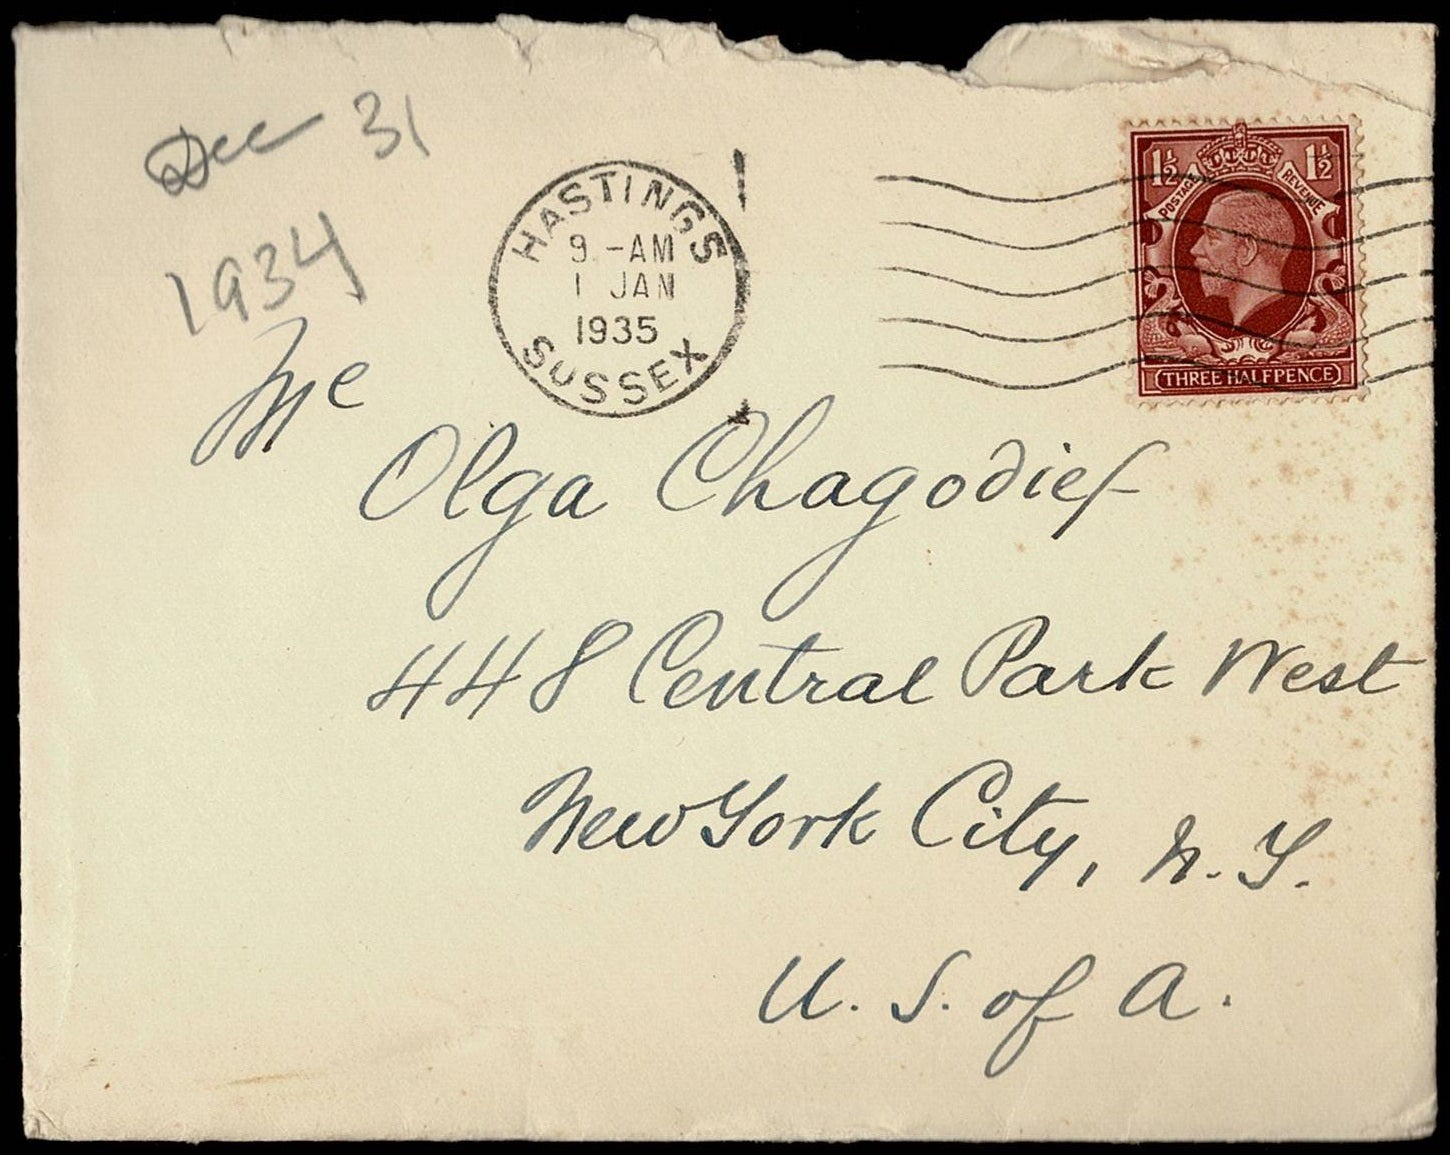 Dec 31
1934
HASTINGS
9 - AM
1 JAN
1935
SUSSEX
1½ 1½
POSTAGE REVENUE
THREE HALFPENCE
Me
Olga Chagodief
448 Central Park West
New York City, N. Y.
U. S. of A.